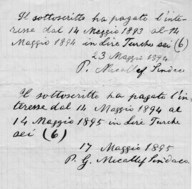 Il sottoscritto ha pagato l'inte-
resse dal 14 Maggio 1893 al 14
Maggio 1894 in lire Turche sei (6)
23 Maggio 1894
P. Micallef Sindaco
Il sottoscritto ha pagato l'in-
teresse dal 14 Maggio 1894 al
14 Maggio 1895 in lire Turche
sei (6)
17 Maggio 1895
P. G. Micallef Sindaco